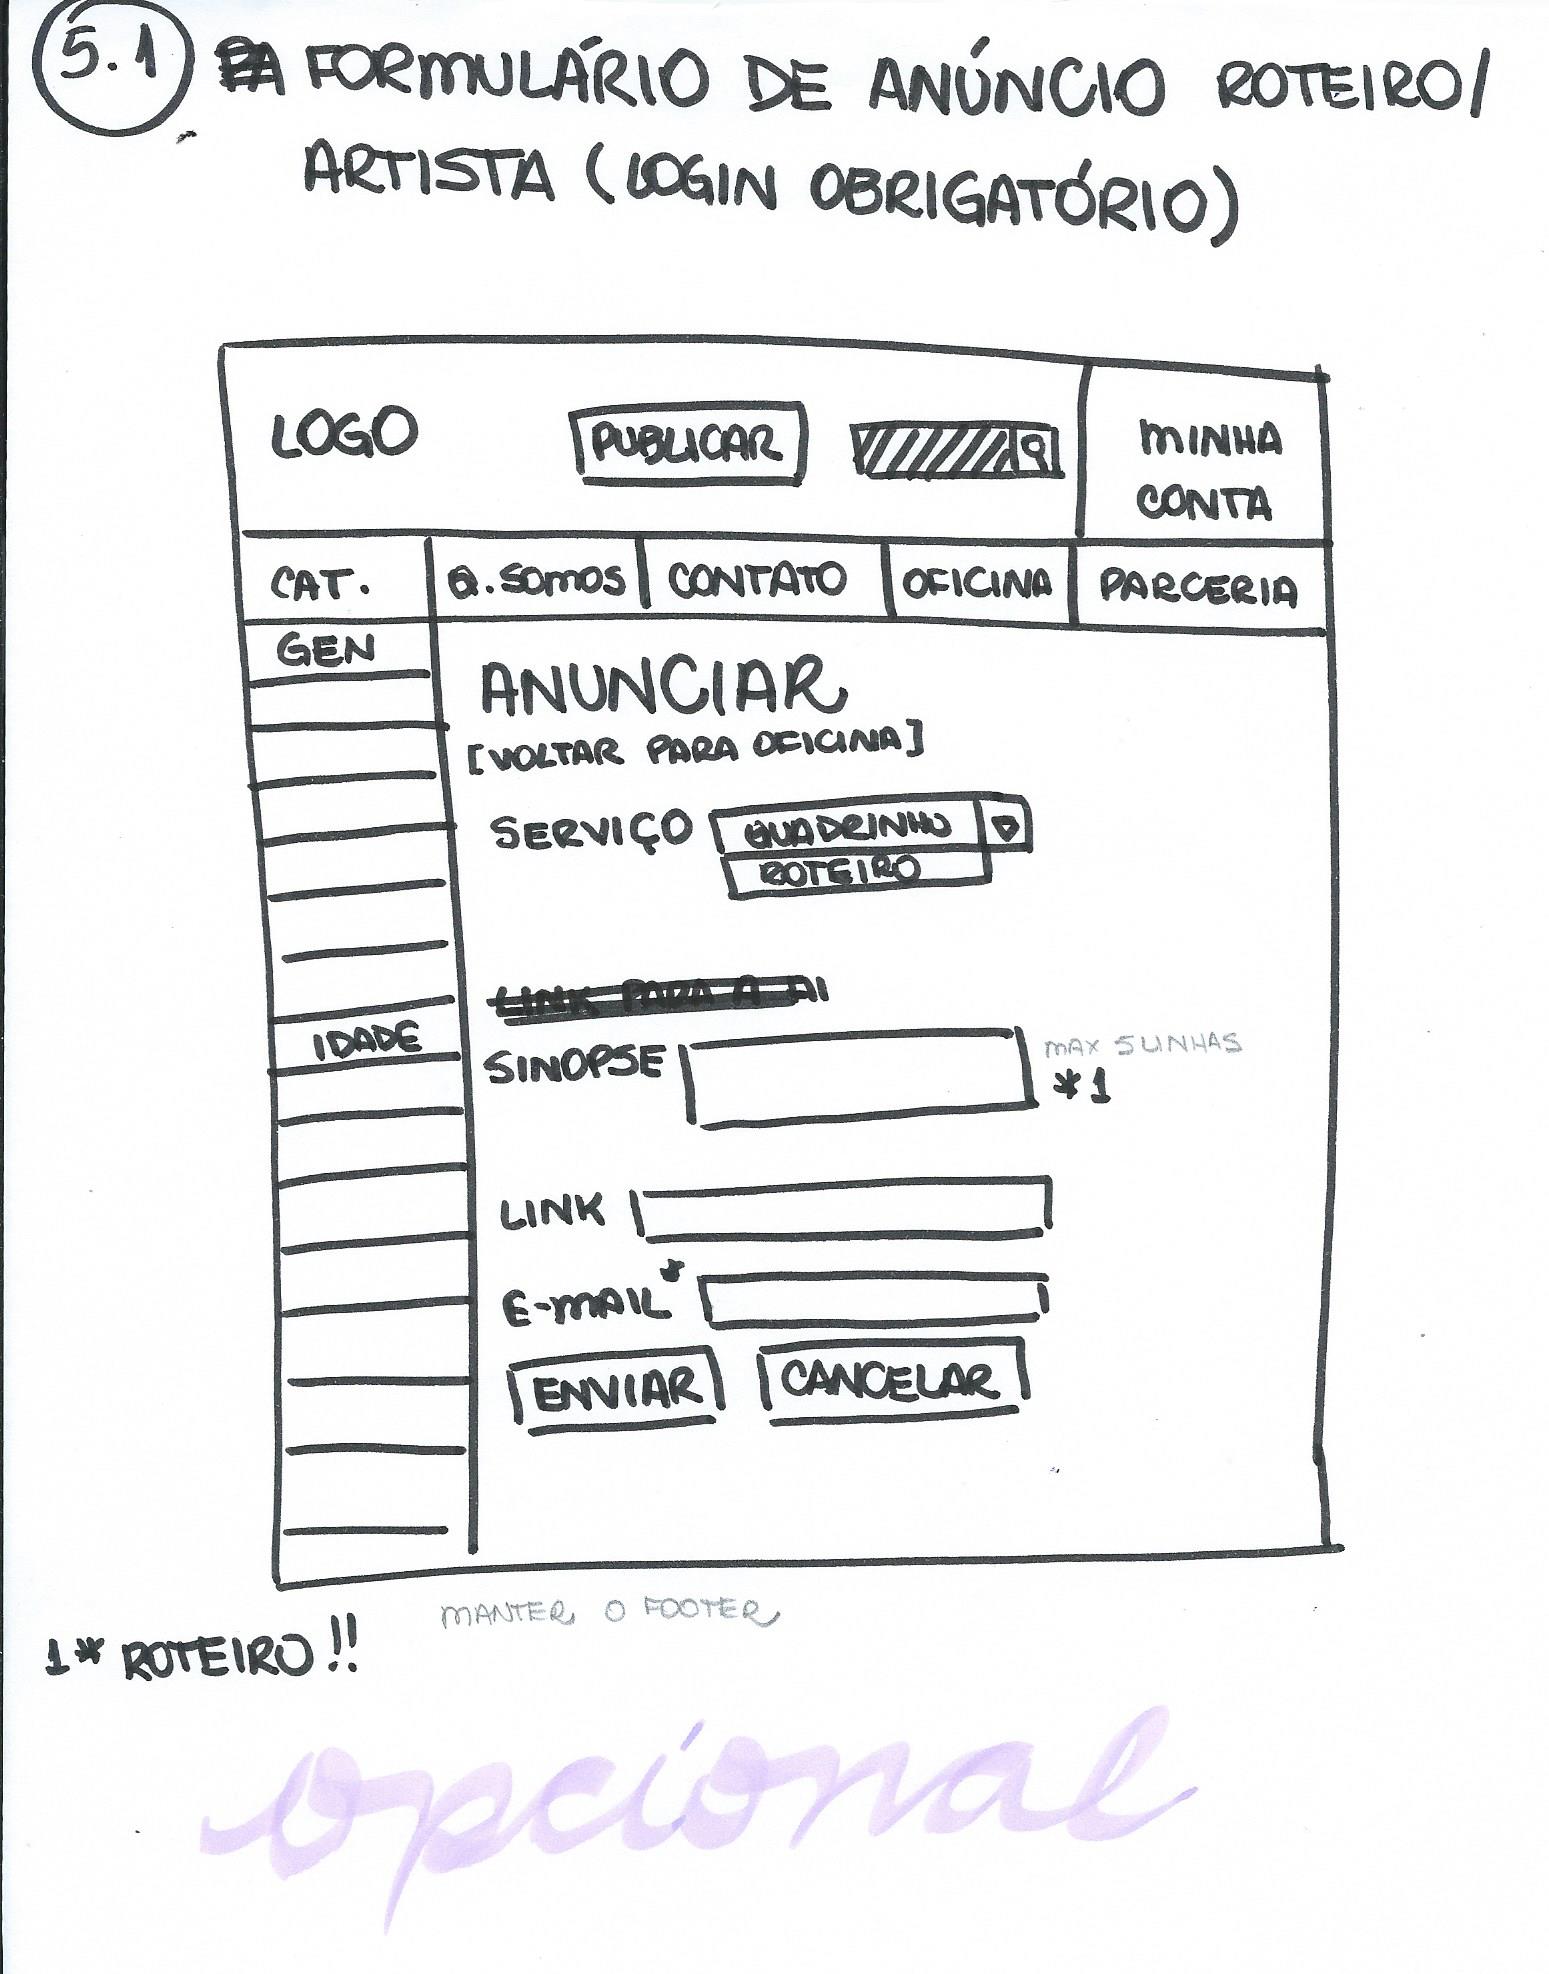 5.1 FORMULÁRIO DE ANÚNCIO ROTEIRO/
ARTISTA (LOGIN OBRIGATÓRIO)
LOGO PUBLICAR MINHA
CONTA
CAT. Q.SOMOS CONTATO OFICINA PARCERIA
GEN
ANUNCIAR
[VOLTAR PARA OFICINA]
SERVIÇO QUADRINHO
ROTEIRO
LINK PARA A
IDADE
SINOPSE MAX 5 LINHAS
*1
LINK
E-MAIL*
ENVIAR CANCELAR
MANTER O FOOTER
1* ROTEIRO!!
opcional